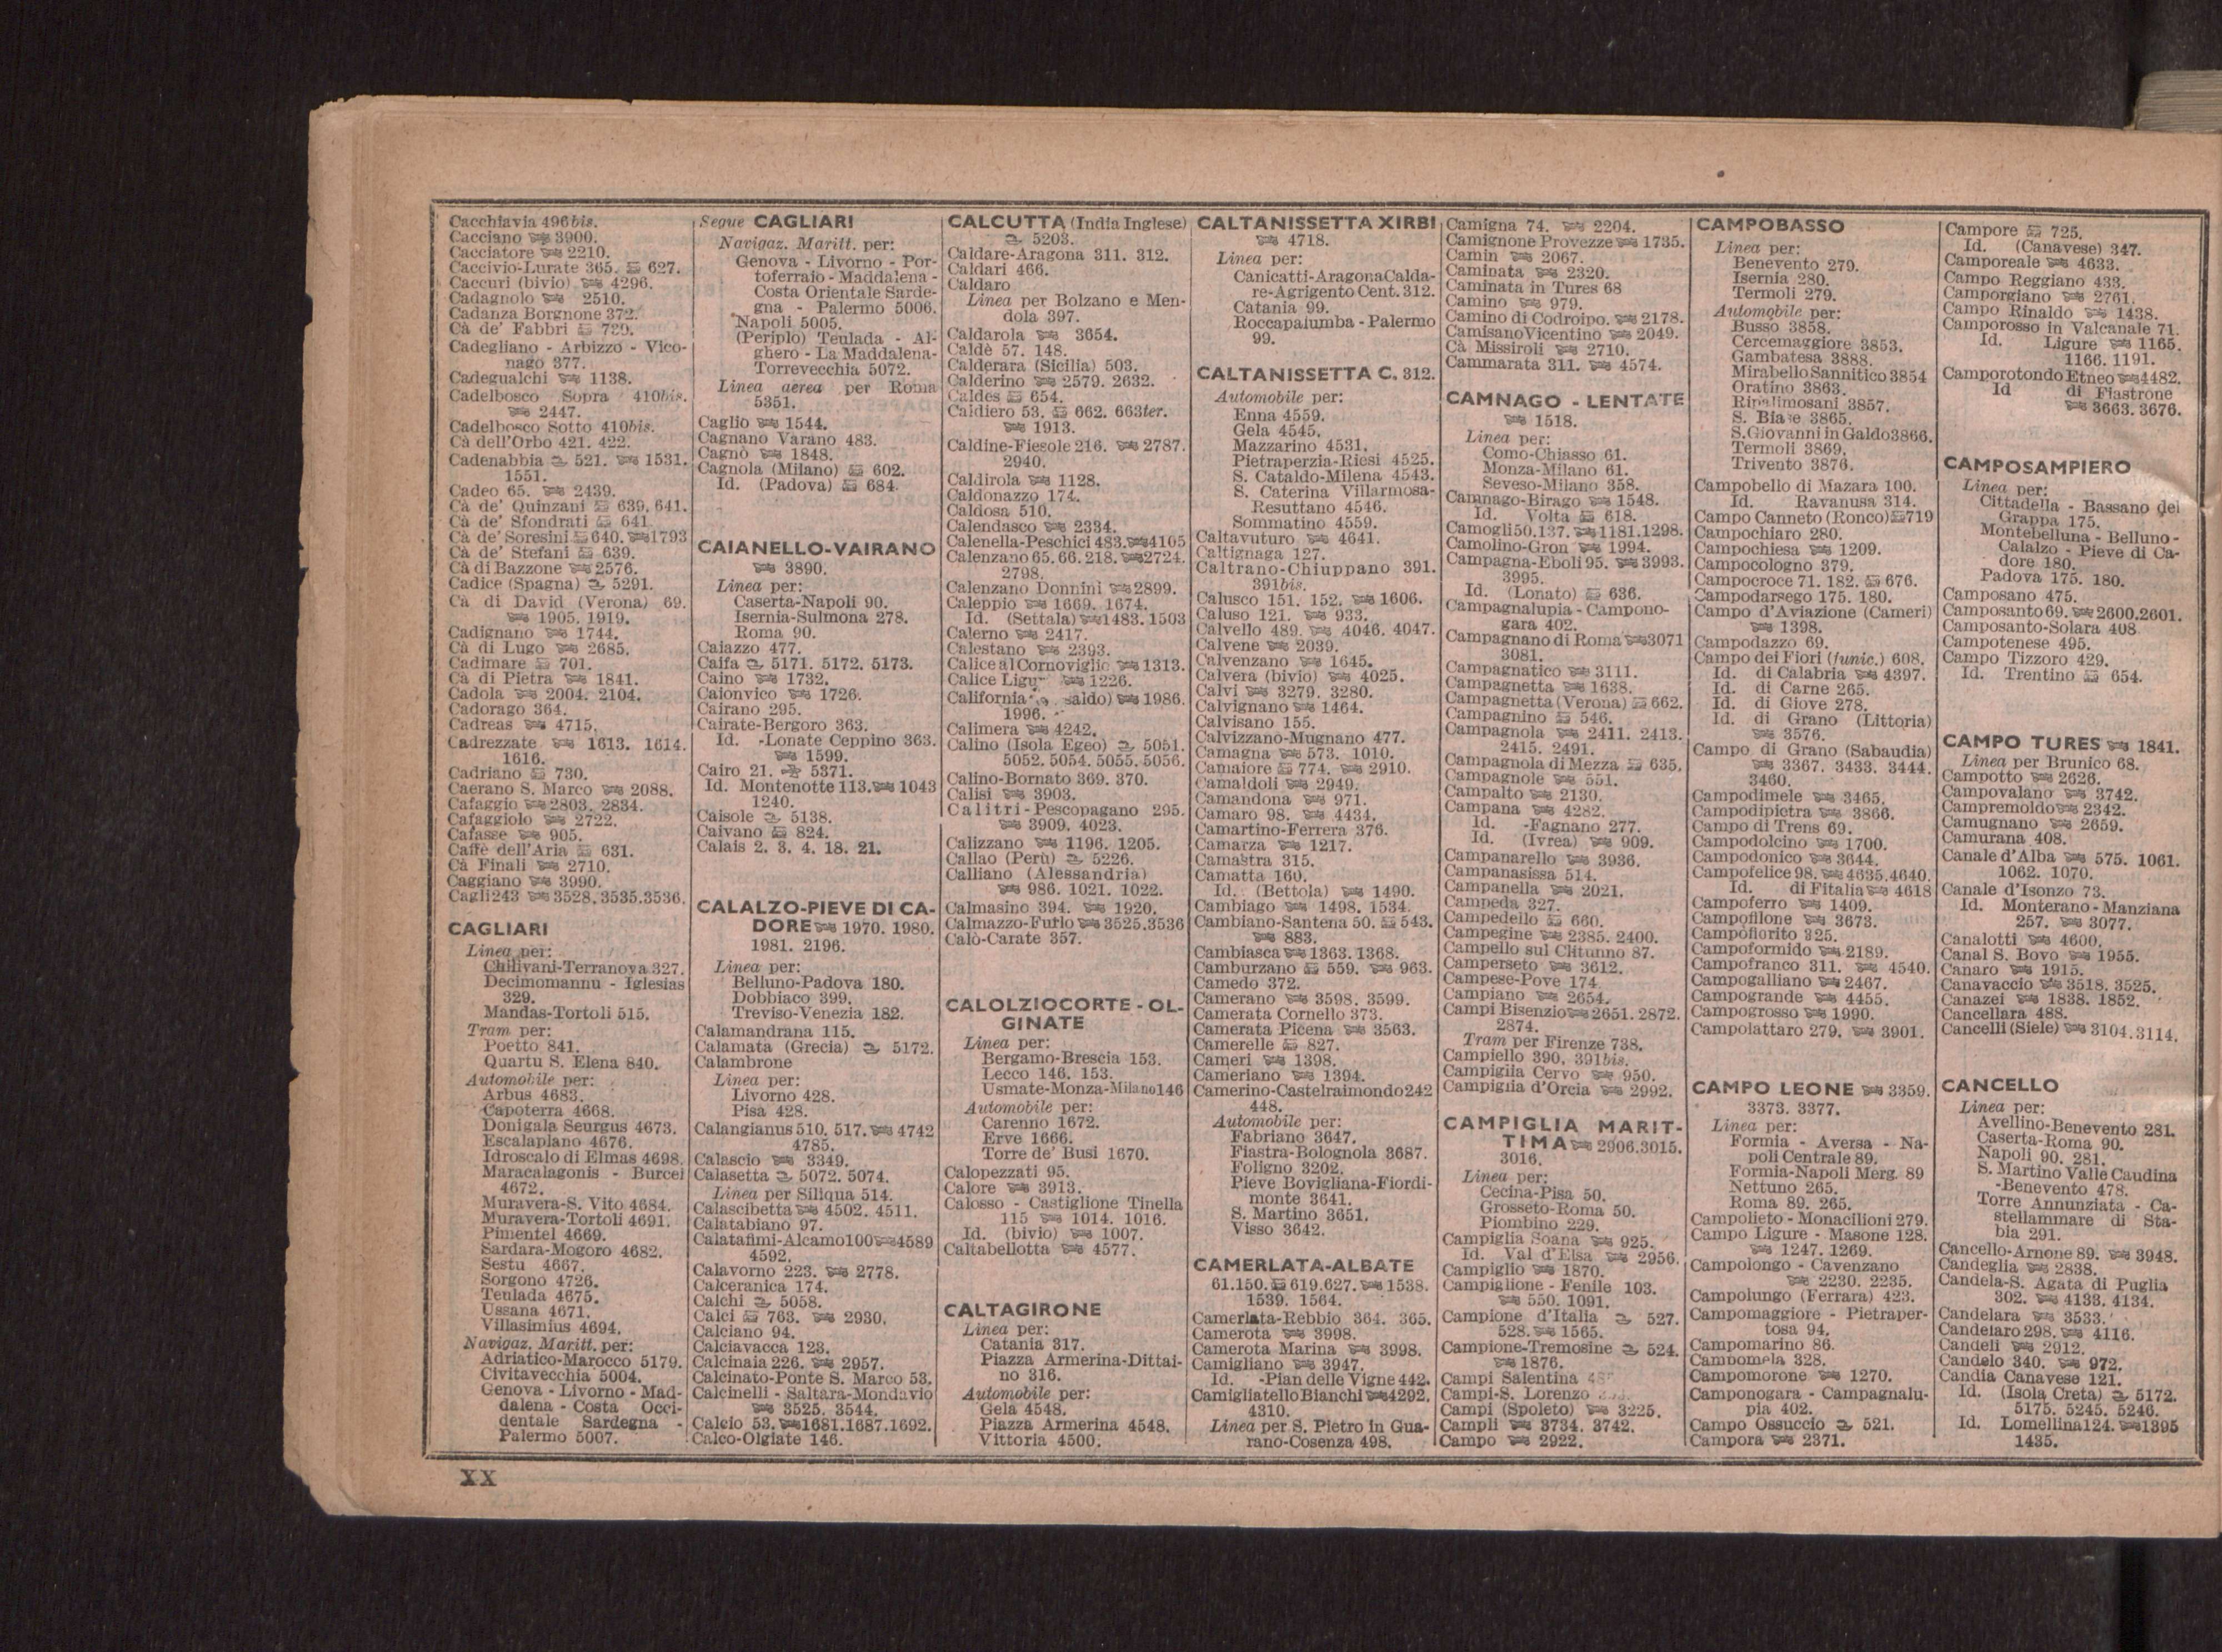 Cacchiavia 496bis.
Cacciano 3900.
Cacciatore 2210.
Caccivio-Lurate 365. 627.
Caccuri (bivio) 4296.
Cadagnolo 2510.
Cadanza Borgnone 372.
Cà de' Fabbri 730.
Cadegliano - Arbizzo - Vico-
nago 377.
Cadegualchi 1138.
Cadelbosco Sopra 410bis.
2447.
Cadelbosco Sotto 410bis.
Cà dell'Orbo 421. 422.
Cadenabbia 521. 1531.
1551.
Cadeo 65. 2439.
Cà de' Quinzani 639. 641.
Cà de' Sfondrati 641
Cà de' Soresini 640. 1793
Cà de' Stefani 639.
Cà di Bazzone 2576.
Cadice (Spagna) 5291.
Cà di David (Verona) 69.
1905. 1919.
Cadignano 1744.
Cà di Lugo 2685.
Cadimare 701.
Cà di Pietra 1841.
Cadola 2004. 2104.
Cadorago 364.
Cadreas 4715.
Cadrezzate 1613. 1614.
1616.
Cadriano 730.
Caerano S. Marco 2088.
Cafaggio 2803. 2834.
Cafaggiolo 2722.
Cafasse 905.
Caffè dell'Aria 631.
Cà Finali 2710.
Caggiano 3990.
Cagli 243 3528. 3535. 3536.
CAGLIARI
Linea per:
Chilivani-Terranova 327.
Decimomannu - Iglesias
329.
Mandas-Tortoli 515.
Tram per:
Poetto 841.
Quartu S. Elena 840.
Automobile per:
Arbus 4683.
Capoterra 4668.
Donigala Seurgus 4673.
Escalaplano 4676.
Idroscalo di Elmas 4698.
Maracalagonis - Burcei
4672.
Muravera-S. Vito 4684.
Muravera-Tortoli 4691.
Pimentel 4669.
Sardara-Mogoro 4682.
Sestu 4667.
Sorgono 4726.
Teulada 4675.
Ussana 4671.
Villasimius 4694.
Navigaz. Maritt. per:
Adriatico-Marocco 5179.
Civitavecchia 5004.
Genova - Livorno - Mad-
dalena - Costa Occi-
dentale Sardegna -
Palermo 5007.
Segue CAGLIARI
Navigaz. Maritt. per:
Genova - Livorno - Por-
toferraio - Maddalena -
Costa Orientale Sarde-
gna - Palermo 5006.
Napoli 5005.
(Periplo) Teulada - Al-
ghero - La Maddalena-
Torrevecchia 5072.
Linea aerea per Roma
5351.
Caglio 1544.
Cagnano Varano 483.
Cagnò 1848.
Cagnola (Milano) 602.
Id. (Padova) 684.
CAIANELLO-VAIRANO
3890.
Linea per:
Caserta-Napoli 90.
Isernia-Sulmona 278.
Roma 90.
Caiazzo 477.
Caifa 5171. 5172. 5173.
Caino 1732.
Caionvico 1726.
Cairano 295.
Cairate-Bergoro 363.
Id. -Lonate Ceppino 363.
1599.
Cairo 21. 5371.
Id. Montenotte 113. 1043
1240.
Caisole 5138.
Caivano 824.
Calais 2. 3. 4. 18. 21.
CALALZO-PIEVE DI CA-
DORE 1970. 1980.
1981. 2196.
Linea per:
Belluno-Padova 180.
Dobbiaco 399.
Treviso-Venezia 182.
Calamandrana 115.
Calamata (Grecia) 5172.
Calambrone
Linea per:
Livorno 428.
Pisa 428.
Calangianus 510. 517. 4742
4785.
Calascio 3349.
Calasetta 5072. 5074.
Linea per Siliqua 514.
Calascibetta 4502. 4511.
Calatabiano 97.
Calatafimi-Alcamo 100 4589
4592.
Calavorno 223. 2778.
Calceranica 174.
Calchi 5058.
Calci 763. 2930.
Calciano 94.
Calciavacca 123.
Calcinaia 226. 2957.
Calcinato-Ponte S. Marco 53.
Calcinelli - Saltara-Mondavio
3525. 3544.
Calcio 53. 1681. 1687. 1692.
Calco-Olgiate 146.
CALCUTTA (India Inglese)
5203.
Caldare-Aragona 311. 312.
Caldari 466.
Caldaro
Linea per Bolzano e Men-
dola 397.
Caldarola 3654.
Caldè 57. 148.
Calderara (Sicilia) 503.
Calderino 2579. 2632.
Caldes 654.
Caldiero 53. 662. 663ter.
1913.
Caldine-Fiesole 216. 2787.
2940.
Caldirola 1128.
Caldonazzo 174.
Caldosa 510.
Calendasco 2334.
Calenella-Peschici 483. 4105
Calenzano 65. 66. 218. 2724.
2798.
Calenzano Donnini 2899.
Caleppio 1669. 1674.
Id. (Settala) 1483. 1503
Calerno 2417.
Calestano 2393.
Calice al Cornoviglio 1313.
Calice Ligu 1226.
California saldo) 1986.
1996.
Calimera 4242.
Calino (Isola Egeo) 5051.
5052. 5054. 5055. 5056.
Calino-Bornato 369. 370.
Calisi 3903.
Calitri-Pescopagano 295.
3909. 4023.
Calizzano 1196. 1205.
Callao (Perù) 5226.
Calliano (Alessandria)
986. 1021. 1022.
Calmasino 394. 1920.
Calmazzo-Furlo 3525. 3536
Calò-Carate 357.
CALOLZIOCORTE - OL-
GINATE
Linea per:
Bergamo-Brescia 153.
Lecco 146. 153.
Usmate-Monza-Milano 146
Automobile per:
Carenno 1672.
Erve 1666.
Torre de' Busi 1670.
Calopezzati 95.
Calore 3913.
Calosso - Castiglione Tinella
115 1014. 1016.
Id. (bivio) 1007.
Caltabellotta 4577.
CALTAGIRONE
Linea per:
Catania 317.
Piazza Armerina-Dittai-
no 316.
Automobile per:
Gela 4548.
Piazza Armerina 4548.
Vittoria 4500.
CALTANISSETTA XIRBI
4718.
Linea per:
Canicatti-Aragona Calda-
re-Agrigento Cent. 312.
Catania 99.
Roccapalumba - Palermo
99.
CALTANISSETTA C. 312.
Automobile per:
Enna 4559.
Gela 4545.
Mazzarino 4531.
Pietraperzia-Riesi 4525.
S. Cataldo-Milena 4543.
S. Caterina Villarmosa-
Resuttano 4546.
Sommatino 4559.
Caltavuturo 4641.
Caltignaga 127.
Caltrano-Chiuppano 391.
391bis.
Calusco 151. 152. 1606.
Caluso 121. 933.
Calvello 489. 4046. 4047.
Calvene 2039.
Calvenzano 1645.
Calvera (bivio) 4025.
Calvi 3279. 3280.
Calvignano 1464.
Calvisano 155.
Calvizzano-Mugnano 477.
Camagna 573. 1010.
Camaiore 774. 2910.
Camaldoli 2949.
Camandona 971.
Camaro 98. 4434.
Camartino-Ferrera 376.
Camarza 1217.
Camastra 315.
Camatta 160.
Id. (Bettola) 1490.
Cambiago 1498. 1534.
Cambiano-Santena 50. 543.
883.
Cambiasca 1363. 1368.
Camburzano 559. 963.
Camedo 372.
Camerano 3598. 3599.
Camerata Cornello 373.
Camerata Picena 3563.
Camerelle 827.
Cameri 1398.
Cameriano 1394.
Camerino-Castelraimondo 242
448.
Automobile per:
Fabriano 3647.
Fiastra-Bolognola 3687.
Foligno 3202.
Pieve Bovigliana-Fiordi-
monte 3641.
S. Martino 3651.
Visso 3642.
CAMERLATA-ALBATE
61. 150. 619. 627. 1538.
1539. 1564.
Camerlata-Rebbio 364. 365.
Camerota 3998.
Camerota Marina 3998.
Camigliano 3947.
Id. -Pian delle Vigne 442.
Camigliatello Bianchi 4292.
4310.
Linea per S. Pietro in Gua-
rano-Cosenza 498.
Camigna 74. 2204.
Camignone Provezze 1735.
Camin 2067.
Caminata 2320.
Caminata in Tures 68
Camino 979.
Camino di Codroipo. 2178.
Camisano Vicentino 2049.
Cà Missiroli 2710.
Cammarata 311. 4574.
CAMNAGO - LENTATE
1518.
Linea per:
Como-Chiasso 61.
Monza-Milano 61.
Seveso-Milano 358.
Camnago-Birago 1548.
Id. Volta 618.
Camogli 50. 137. 1181. 1298.
Camolino-Gron 1994.
Campagna-Eboli 95. 3993.
3995.
Id. (Lonato) 636.
Campagnalupia - Campono-
gara 402.
Campagnano di Roma 3071
3081.
Campagnatico 3111.
Campagnetta 1638.
Campagnetta (Verona) 662.
Campagnino 546.
Campagnola 2411. 2413.
2415. 2491.
Campagnola di Mezza 635.
Campagnole 551.
Campalto 2130.
Campana 4282.
Id. -Fagnano 277.
Id. (Ivrea) 909.
Campanarello 3936.
Campanasissa 514.
Campanella 2021.
Campeda 327.
Campedello 660.
Campegine 2385. 2400.
Campello sul Clitunno 87.
Camperseto 3612.
Campese-Pove 174
Campiano 2654.
Campi Bisenzio 2651. 2872.
2874.
Tram per Firenze 738.
Campiello 390. 391bis.
Campiglia Cervo 950.
Campiglia d'Orcia 2992.
CAMPIGLIA MARIT-
TIMA 2906. 3015.
3016.
Linea per:
Cecina-Pisa 50.
Grosseto-Roma 50.
Piombino 229.
Campiglia Soana 925.
Id. Val d'Elsa 2956.
Campiglio 1870.
Campiglione - Fenile 103.
550. 1091.
Campione d'Italia 527.
528. 1565.
Campione-Tremosine 524.
1876.
Campi Salentina
Campi-S. Lorenzo
Campi (Spoleto) 3225.
Campli 3734. 3742.
Campo 2922.
CAMPOBASSO
Linea per:
Benevento 279.
Isernia 280.
Termoli 279.
Automobile per:
Busso 3858.
Cercemaggiore 3853.
Gambatesa 3888.
Mirabello Sannitico 3854
Oratino 3863.
Ripalimosani 3857.
S. Biase 3865.
S. Giovanni in Galdo 3866.
Termoli 3869.
Trivento 3876.
Campobello di Mazara 100.
Id. Ravanusa 314.
Campo Canneto (Ronco) 719
Campochiaro 280.
Campochiesa 1209.
Campocologno 379.
Campocroce 71. 182. 676.
Campodarsego 175. 180.
Campo d'Aviazione (Cameri)
1398.
Campodazzo 69.
Campo dei Fiori (funic.) 608.
Id. di Calabria 4397.
Id. di Carne 265.
Id. di Giove 278.
Id. di Grano (Littoria)
3576.
Campo di Grano (Sabaudia)
3367. 3433. 3444.
3460.
Campodimele 3465.
Campodipietra 3866.
Campo di Trens 69.
Campodolcino 1700.
Campodonico 3644.
Campofelice 98. 4635. 4640.
Id. di Fitalia 4618
Campoferro 1409.
Campofilone 3673.
Campofiorito 325.
Campoformido 2189.
Campofranco 311. 4540.
Campogalliano 2467.
Campogrande 4455.
Campogrosso 1990.
Campolattaro 279. 3901.
CAMPO LEONE 3359.
3373. 3377.
Linea per:
Formia - Aversa - Na-
poli Centrale 89.
Formia-Napoli Merg. 89
Nettuno 265.
Roma 89. 265.
Campolieto - Monacilioni 279.
Campo Ligure - Masone 128.
1247. 1269.
Campolongo - Cavenzano
2230. 2235.
Campolungo (Ferrara) 423.
Campomaggiore - Pietraper-
tosa 94.
Campomarino 86.
Campomela 328.
Campomorone 1270.
Camponogara - Campagnalu-
pia 402.
Campo Ossuccio 521.
Campora 2371.
Campore 725.
Id. (Canavese) 347.
Camporeale 4633.
Campo Reggiano 433.
Camporgiano 2761.
Campo Rinaldo 1438.
Camporosso in Valcanale 71.
Id. Ligure 1165.
1166. 1191.
Camporotondo Etneo 4482.
Id di Fiastrone
3663. 3676.
CAMPOSAMPIERO
Linea per:
Cittadella - Bassano del
Grappa 175.
Montebelluna - Belluno -
Calalzo - Pieve di Ca-
dore 180.
Padova 175. 180.
Camposano 475.
Camposanto 69. 2600. 2601.
Camposanto-Solara 408
Campotenese 495.
Campo Tizzoro 429.
Id. Trentino 654.
CAMPO TURES 1841.
Linea per Brunico 68.
Campotto 2626.
Campovalano 3742.
Campremoldo 2342.
Camugnano 2659.
Camurana 408.
Canale d'Alba 575. 1061.
1062. 1070.
Canale d'Isonzo 73.
Id. Monterano - Manziana
257. 3077.
Canalotti 4600.
Canal S. Bovo 1955.
Canaro 1915.
Canavaccio 3518. 3525.
Canazei 1838. 1852.
Cancellara 488.
Cancelli (Siele) 3104. 3114.
CANCELLO
Linea per:
Avellino-Benevento 281.
Caserta-Roma 90.
Napoli 90. 281.
S. Martino Valle Caudina
-Benevento 478.
Torre Annunziata - Ca-
stellammare di Sta-
bia 291.
Cancello-Arnone 89. 3948.
Candeglia 2838.
Candela-S. Agata di Puglia
302. 4133. 4134.
Candelara 3533.
Candelaro 298. 4116.
Candeli 2912.
Candelo 340. 972.
Candia Canavese 121.
Id. (Isola Creta) 5172.
5175. 5245. 5246.
Id. Lomellina 124. 1395
1435.
XX